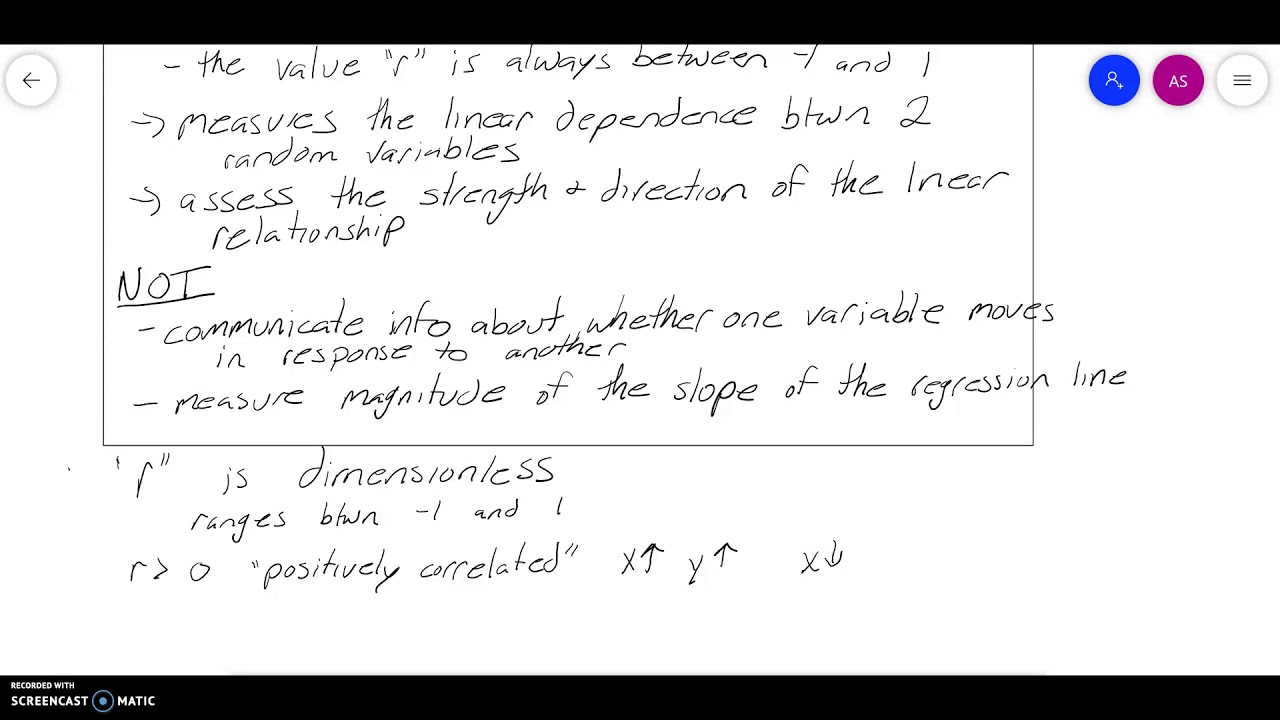 - the value "r" is always between -1 and 1
→ measures the linear dependence btwn 2
random variables
→ assess the strength + direction of the linear
relationship
NOT
- communicate info about whether one variable moves
in response to another
- measure magnitude of the slope of the regression line
"r" is dimensionless
ranges btwn -1 and 1
r > 0 "positively correlated" x↑ y↑ x↓
AS
RECORDED WITH
SCREENCAST MATIC